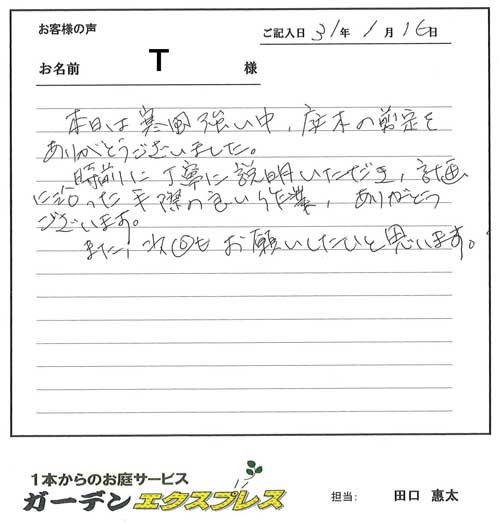 お客様の声
ご記入日 31年 1月 16日
お名前 T 様
本日は寒風強い中、庭木の剪定を
ありがとうございました。
時前に丁寧に説明いただき、計画
に沿った手際の良い作業、ありがとう
ございます。
また、次回もお願いしたいと思います。
1本からのお庭サービス
ガーデンエクスプレス
担当: 田口 惠太